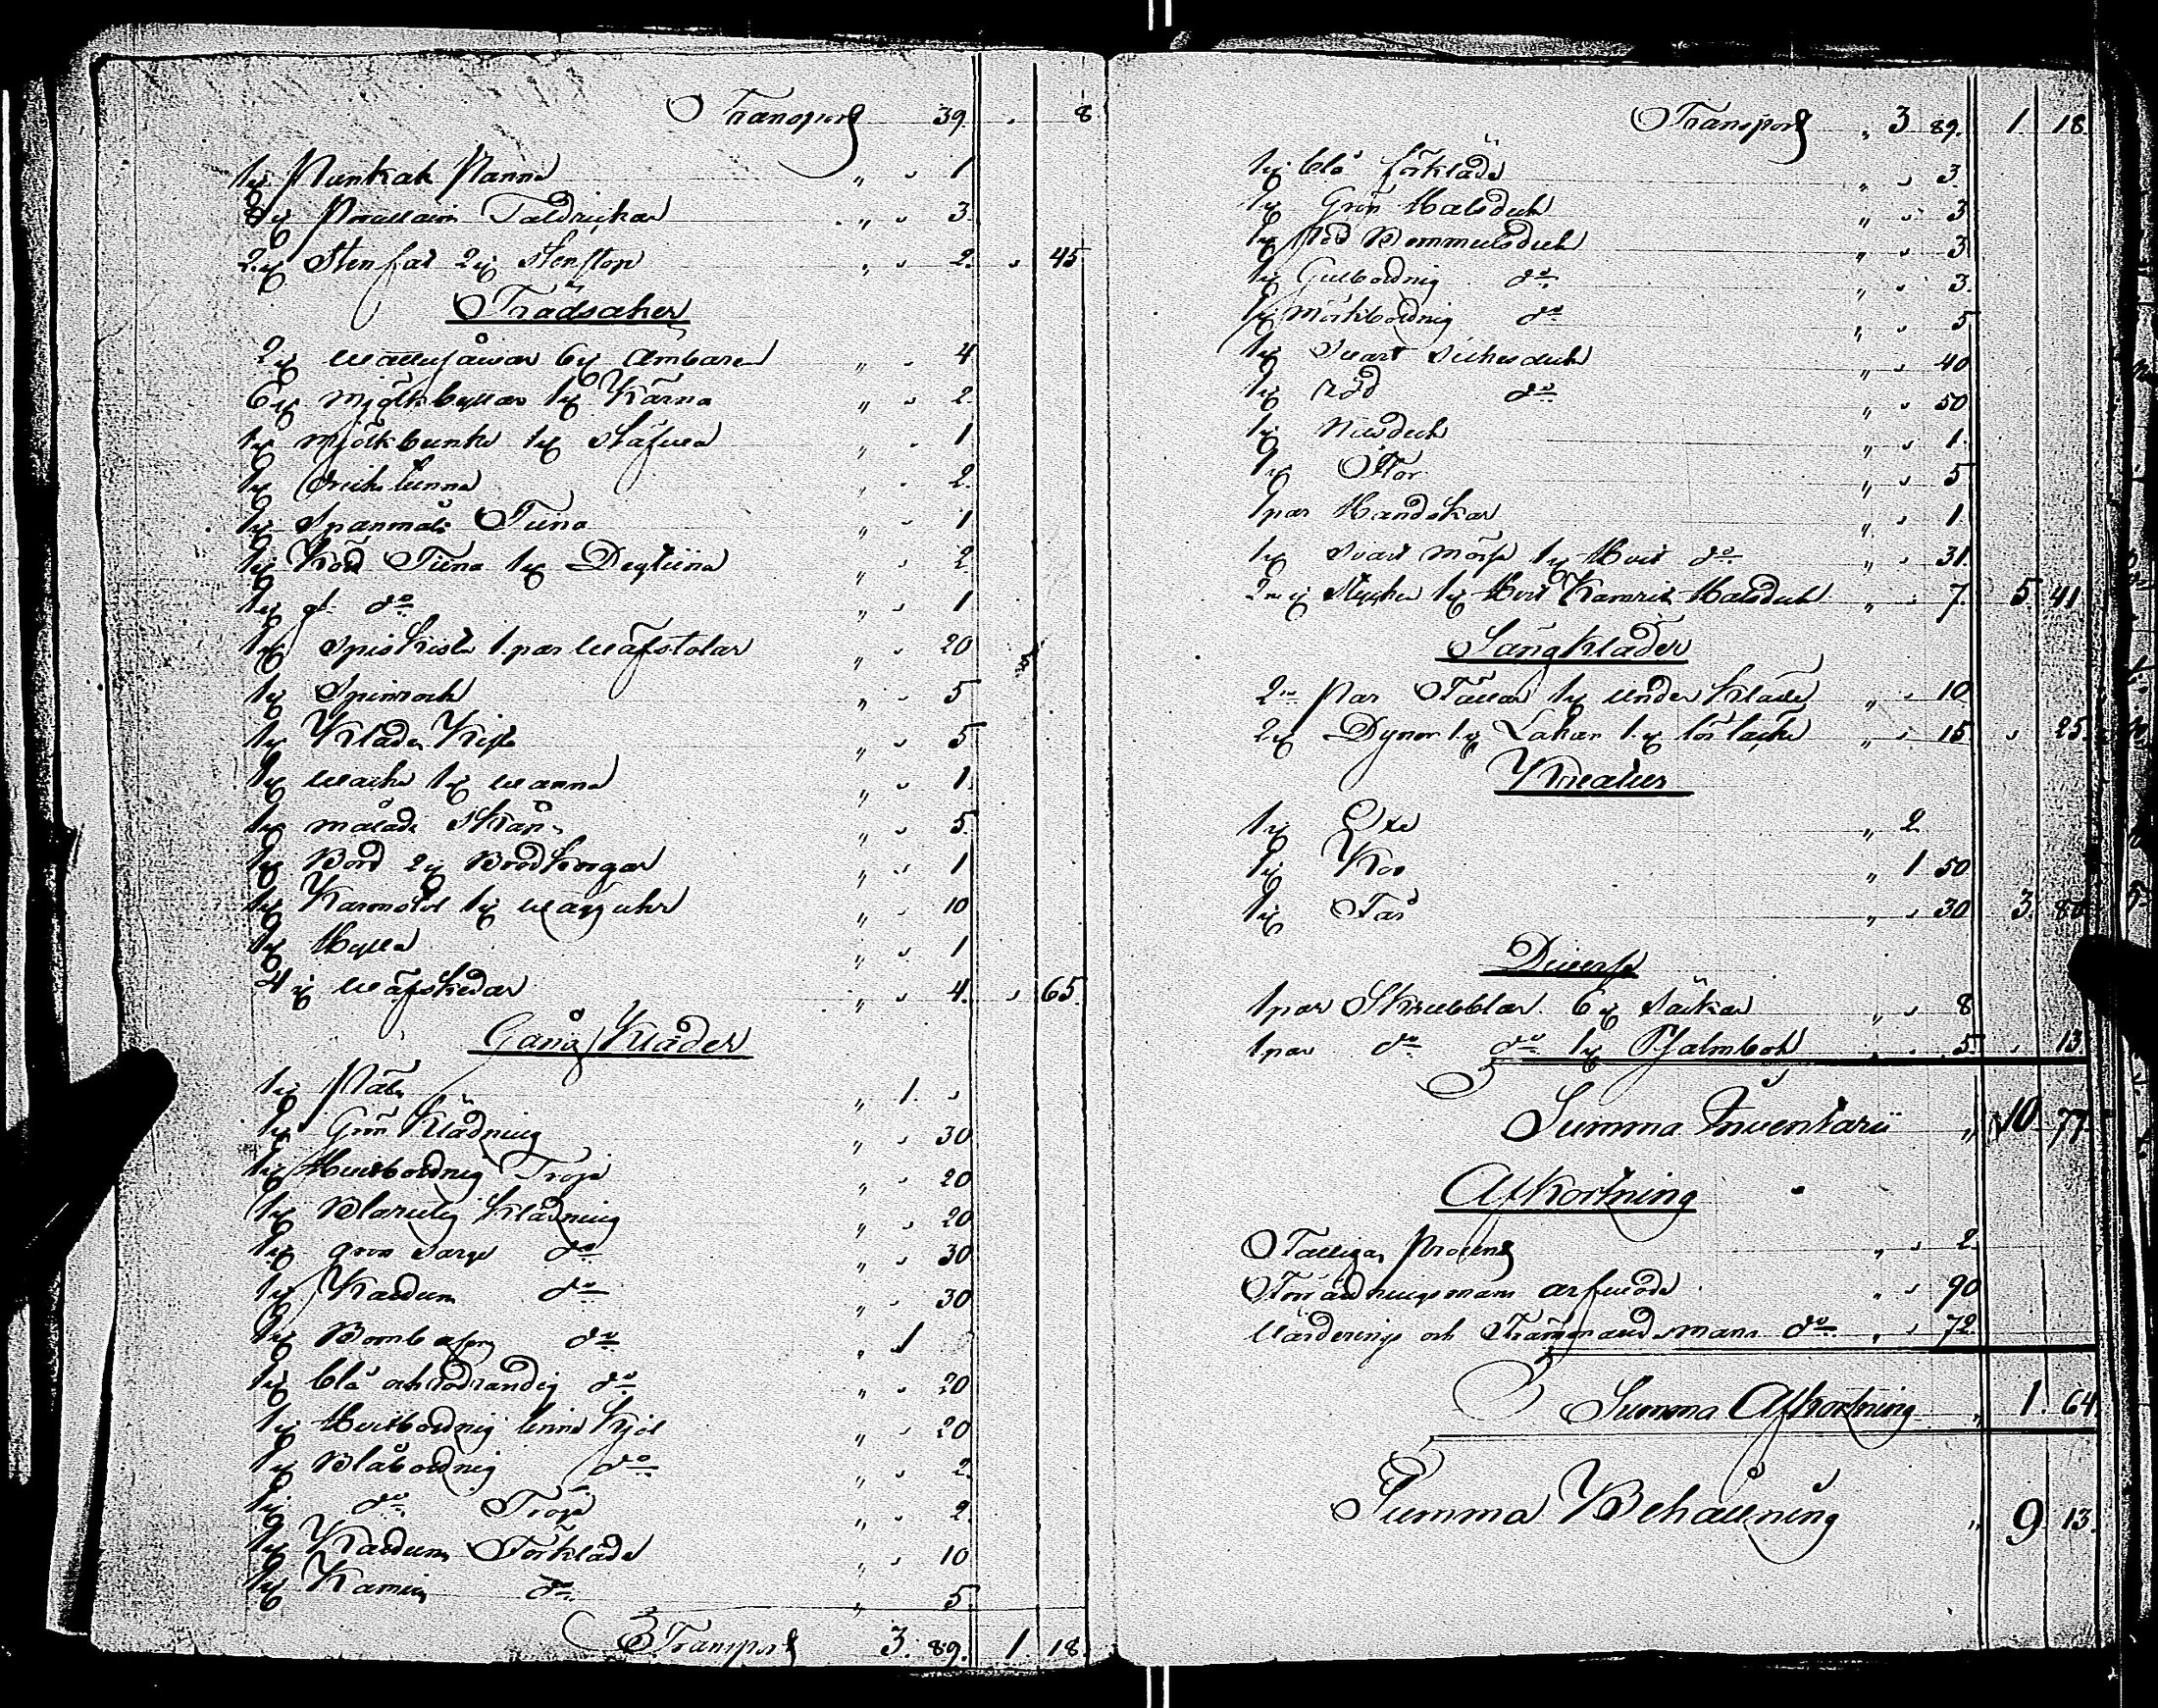 Transport 39. " 8
1 st Pankak Panna " " 1
8 st Porcellains Taldrickar " " 3
2 st Stenfat 2 st Stenstop " " 2. " 45
Trädsaker
2 st 6 st Ämbaren " " 4
6 st mjölkbyttor 1 st Kärna " " 2
1 st mjölkbunke 1 st Stäfva " " 1
1 st Dricks tunna " " 2
1 st Spanmåls Tuna " " 1
1 st Kött Tiina 1 st Degtiina " " 2
1 st gl. do " " 1
1 st Spiskista 1 par Wäfstolar " " 20
1 st Spinrock " " 5
1 st Kläde Kista " " 5
1 st 1 st Wanna " " 1
1 st måladt Skåp " " 5
1 st Bord 2 st Brödkorgar " " 1
1 st Karmstol 1 st Wägguhr " " 10
1 st Hylla " " 1
4 st Wäfskedar " " 4. " 65.
Gång Kläder
1 st Päls " 1. "
1 st Grön Klädning " " 30
1 st Hvitbordnig Tröja " " 20
1 st Blarutig Klädning " " 20
1 st grön Sarge do " " 30
1 st Kattun do " " 30
1 st Bombasin do " 1
1 st blå och rödrandig do " " 20
1 st Hvitbordnig linne Kjol " " 20
1 st Blåbordnig do " " 2
1 st do Tröja " " 2
1 st Kattun Förkläde " " 10
1 st do " 5
Transport 3. 89. 1. 18
Transport " 3 89. 1. 18
1 st blå förkläde " " 3
1 st Grön Halsduk " " 3
1 st Röd Bommulsduk " " 3
1 st Gulbordnig do " " 3
1 st Mörkbordnig do " " 5
1 st Svart Silkesduk " " 40
1 st röd do " " 50
1 st Näsduk " " 1
1 st Flor " " 5
1 par Handskar " " 1
1 st Svart mössa 1 st Hvit do " " 31.
2 st Stycken 1 st Hvit Kamrik Halsduk " " 7. 5. 41
Sängkläder
2 Par Fällar 1 st Under Kläde " " 10
2 st Dynor 1 st Lakan 1 st " " 15 " 25
Kreatur
1 st Oxe " 2
1 st Ko " 1 50
1 st Får " " 30 3. 80
Diverse
1 par Skrubblar 6 st Säckar " " 8
1 par do do 1 st Psalmbok " " 5 " 13
Summa Inventarii " 10 77.
Afkortning
Fattigas Procent " " 2
Förrättningsmans arfvode " " 90
Värderings och do " " 72
Summa Afkortning " 1. 64
Summa Behållning " 9 13.